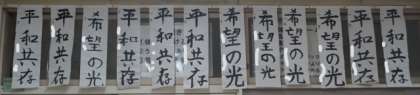 平和共存
平和共存
希望の光
希望の光
希望の光
希望の光
平和共存
平和共存
平和共存
希望の光
平和共存
平和共存